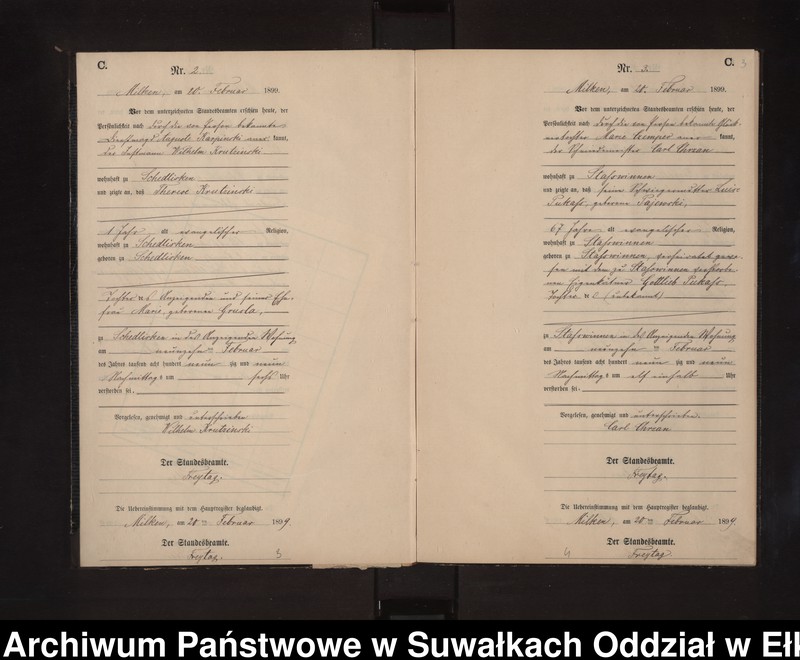 C.
Nr. 2
Milken, am 20. Februar 1899.
Vor dem unterzeichneten Standesbeamten erschien heute, der
Persönlichkeit nach durch die von Person bekannte
Dienstmagd Karpinski kannt,
Wilhelm
wohnhaft zu Schedlisken
und zeigte an, daß Therese
1 Jahr alt evangelischer Religion,
wohnhaft zu Schedlisken
geboren zu Schedlisken
Tochter des Anzeigenden und seiner Ehe-
frau Marie, geborenen
zu Schedlisken in des Anzeigenden Wohnung
am neunzehn ten Februar
des Jahres tausend acht hundert neun zig und neun
Nachmittags um sechs Uhr
verstorben sei.
Vorgelesen, genehmigt und unterschrieben
Wilhelm
Der Standesbeamte.
Freytag.
Die Uebereinstimmung mit dem Hauptregister beglaubigt.
Milken, am 20 ten Februar 1899
Der Standesbeamte.
Freytag.
3
C.
Nr. 3.
Milken, am 20. Februar 1899.
Vor dem unterzeichneten Standesbeamten erschien heute, der
Persönlichkeit nach durch die von Person bekannte
Marie kannt,
der Schmiedemeister Carl
wohnhaft zu Staßwinnen
und zeigte an, daß seine Schwiegermutter
geborene Pajewski,
67 Jahre alt evangelischer Religion,
wohnhaft zu Staßwinnen
geboren zu Staßwinnen, verheiratet gewe-
sen mit dem zu Staßwinnen verstorbe-
nen Eigenkätner Gottlieb
Tochter de (unbekannt)
zu Staßwinnen in des Anzeigenden Wohnung
am neunzehn ten Februar
des Jahres tausend acht hundert neun zig und neun
Nachmittags um elf einhalb Uhr
verstorben sei.
Vorgelesen, genehmigt und unterschrieben
Carl
Der Standesbeamte.
Freytag.
Die Uebereinstimmung mit dem Hauptregister beglaubigt.
Milken, am 20 ten Februar 1899
Der Standesbeamte.
Freytag.
4
Archiwum Państwowe w Suwałkach Oddział w Ełk